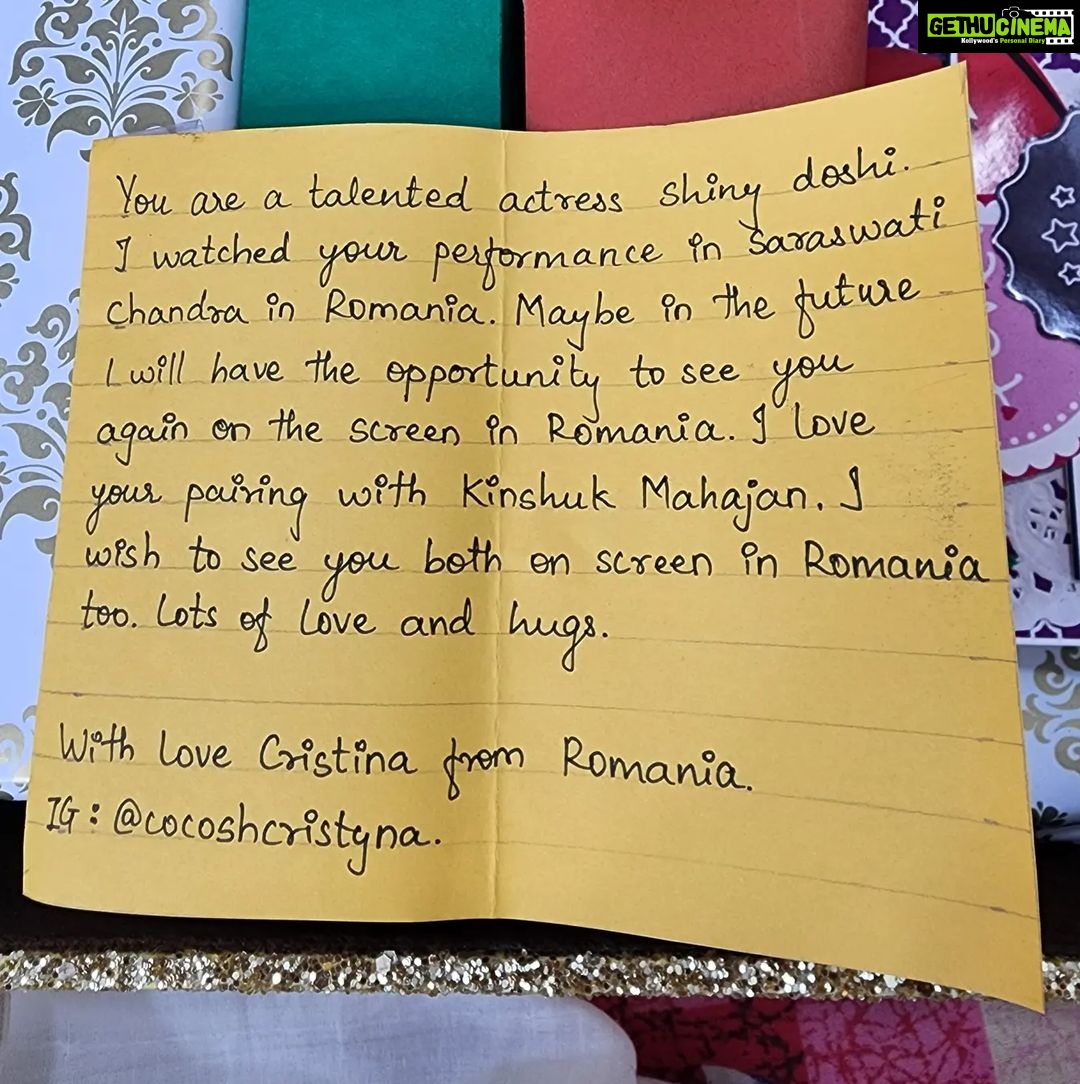 GETHUCINEMA
Kollywood's Personal Diary
You are a talented actress Shiny doshi.
I watched your performance in Saraswati
Chandra in Romania. Maybe in the future
I will have the opportunity to see you
again on the screen in Romania. I love
your pairing with Kinshuk Mahajan. I
wish to see you both on screen in Romania
too. Lots of love and hugs.
With love Cristina from Romania.
IG: @cocoshcristyna.